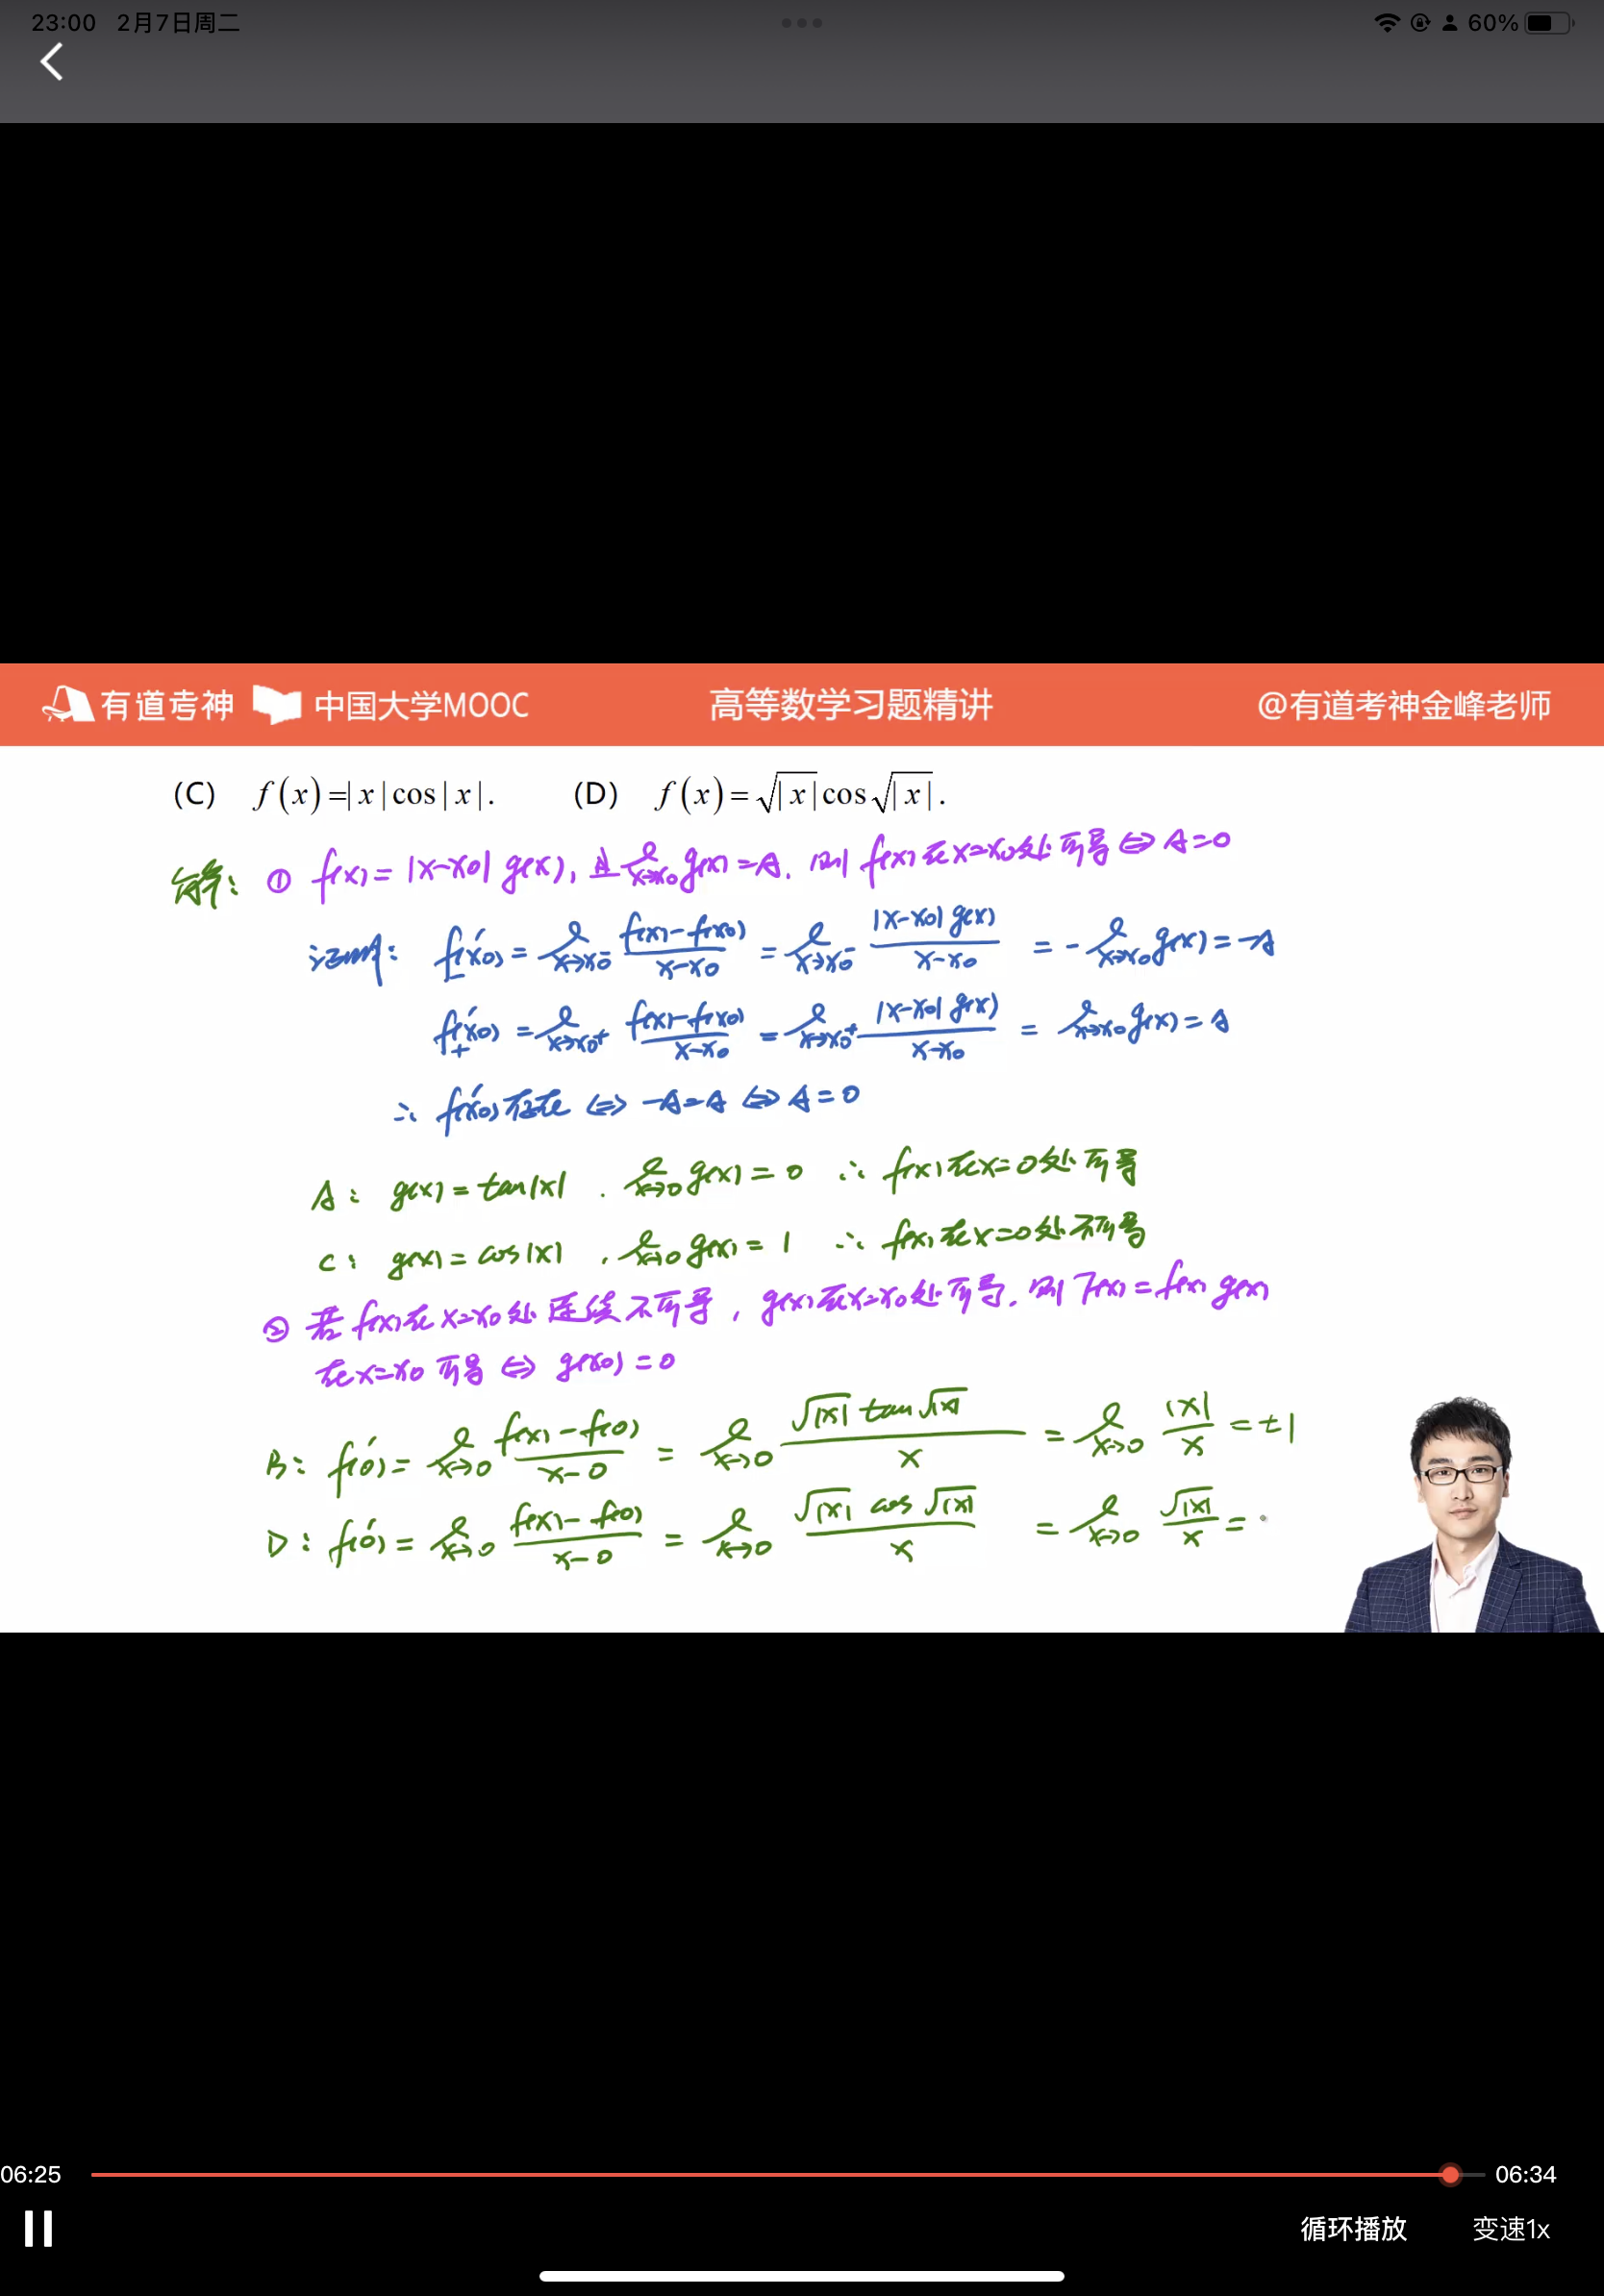 23:00 2月7日周二 60%
有道考神 中国大学MOOC 高等数学习题精讲 @有道考神金峰老师
(C) f(x)=|x|cos|x|. (D) f(x)=√|x|cos√|x|.
解: ① f(x)=|x-x₀|g(x), 且lim x→x₀ g(x)=A. 则f(x)在x=x₀处可导⇔A=0
证明: f₋′(x₀)=lim x→x₀⁻ (f(x)-f(x₀))/(x-x₀)=lim x→x₀⁻ |x-x₀|g(x)/(x-x₀)=-lim x→x₀ g(x)=-A
f₊′(x₀)=lim x→x₀⁺ (f(x)-f(x₀))/(x-x₀)=lim x→x₀⁺ |x-x₀|g(x)/(x-x₀)=lim x→x₀ g(x)=A
∴ f′(x₀)存在⇔-A=A⇔A=0
A: g(x)=tan|x|. lim x→0 g(x)=0 ∴ f(x)在x=0处可导
C: g(x)=cos|x|. lim x→0 g(x)=1 ∴ f(x)在x=0处不可导
② 若f(x)在x=x₀处连续不可导, g(x)在x=x₀处可导. 则F(x)=f(x)g(x)
在x=x₀可导⇔g(x₀)=0
B: f′(0)=lim x→0 (f(x)-f(0))/(x-0)=lim x→0 √|x|tan√|x|/x=lim x→0 |x|/x=±1
D: f′(0)=lim x→0 (f(x)-f(0))/(x-0)=lim x→0 √|x|cos√|x|/x=lim x→0 √|x|/x=
06:25 06:34
循环播放 变速1x